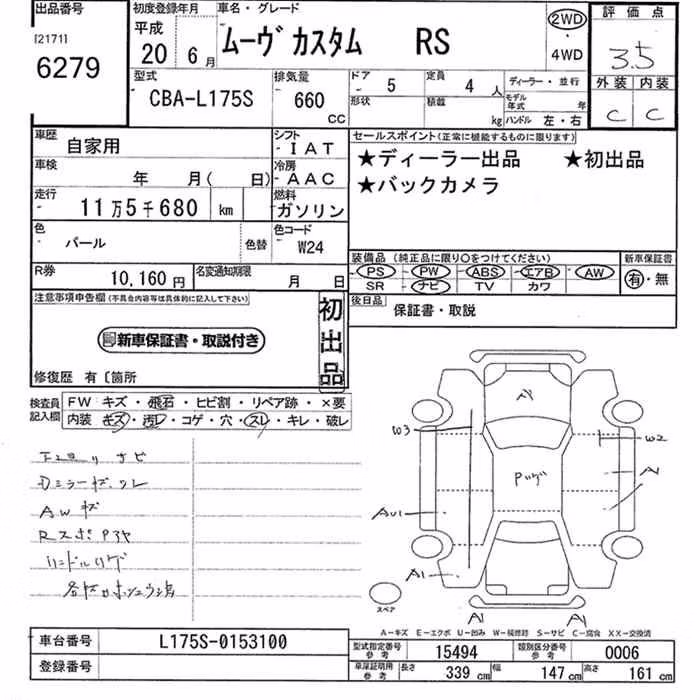 出品番号
[2171]
6279
初度登録年月
平成
20 6月
車名・グレード
ムーヴ カスタム RS
2WD
・
4WD
評価点
3.5
外装 内装
C C
型式
CBA-L175S
排気量
660
CC
ドア 5
形状
定員 4 人
積載 kg
ディーラー・並行
モデル年式 年
ハンドル 左・右
車歴 自家用
車検 年 月( 日)
走行 11万5千680 km
色 パール 色替
シフト
- I A T
冷房
- A A C
燃料
ガソリン
色コード
W24
R券 10,160 円
名変通知期限 月 日
セールスポイント(正常に機能するものに限ります)
★ディーラー出品 ★初出品
★バックカメラ
装備品 (純正品に限り○をつけてください)
PS PW ABS エアB AW
SR ナビ TV カワ
新車保証書
有・無
後日品 保証書・取説
注意事項申告欄(不具合内容等は具体的に記入して下さい)
新車保証書・取説付き
初出品
修復歴 有〔箇所
検査員記入欄
FW キズ・飛石・ヒビ割・リペア跡・×要
内装 キズ・汚レ・コゲ・穴・スレ・キレ・破レ
AWキズ
W3
W2
A1
AU1
A1
A1
A1
スペア
A-キズ E-エクボ U-凹み W-補修跡 S-サビ C-腐食 XX-交換済
車台番号 L175S-0153100
登録番号
型式指定番号 参考 15494
類別区分番号 参考 0006
車庫証明用 参考
長さ 339 cm
幅 147 cm
高さ 161 cm